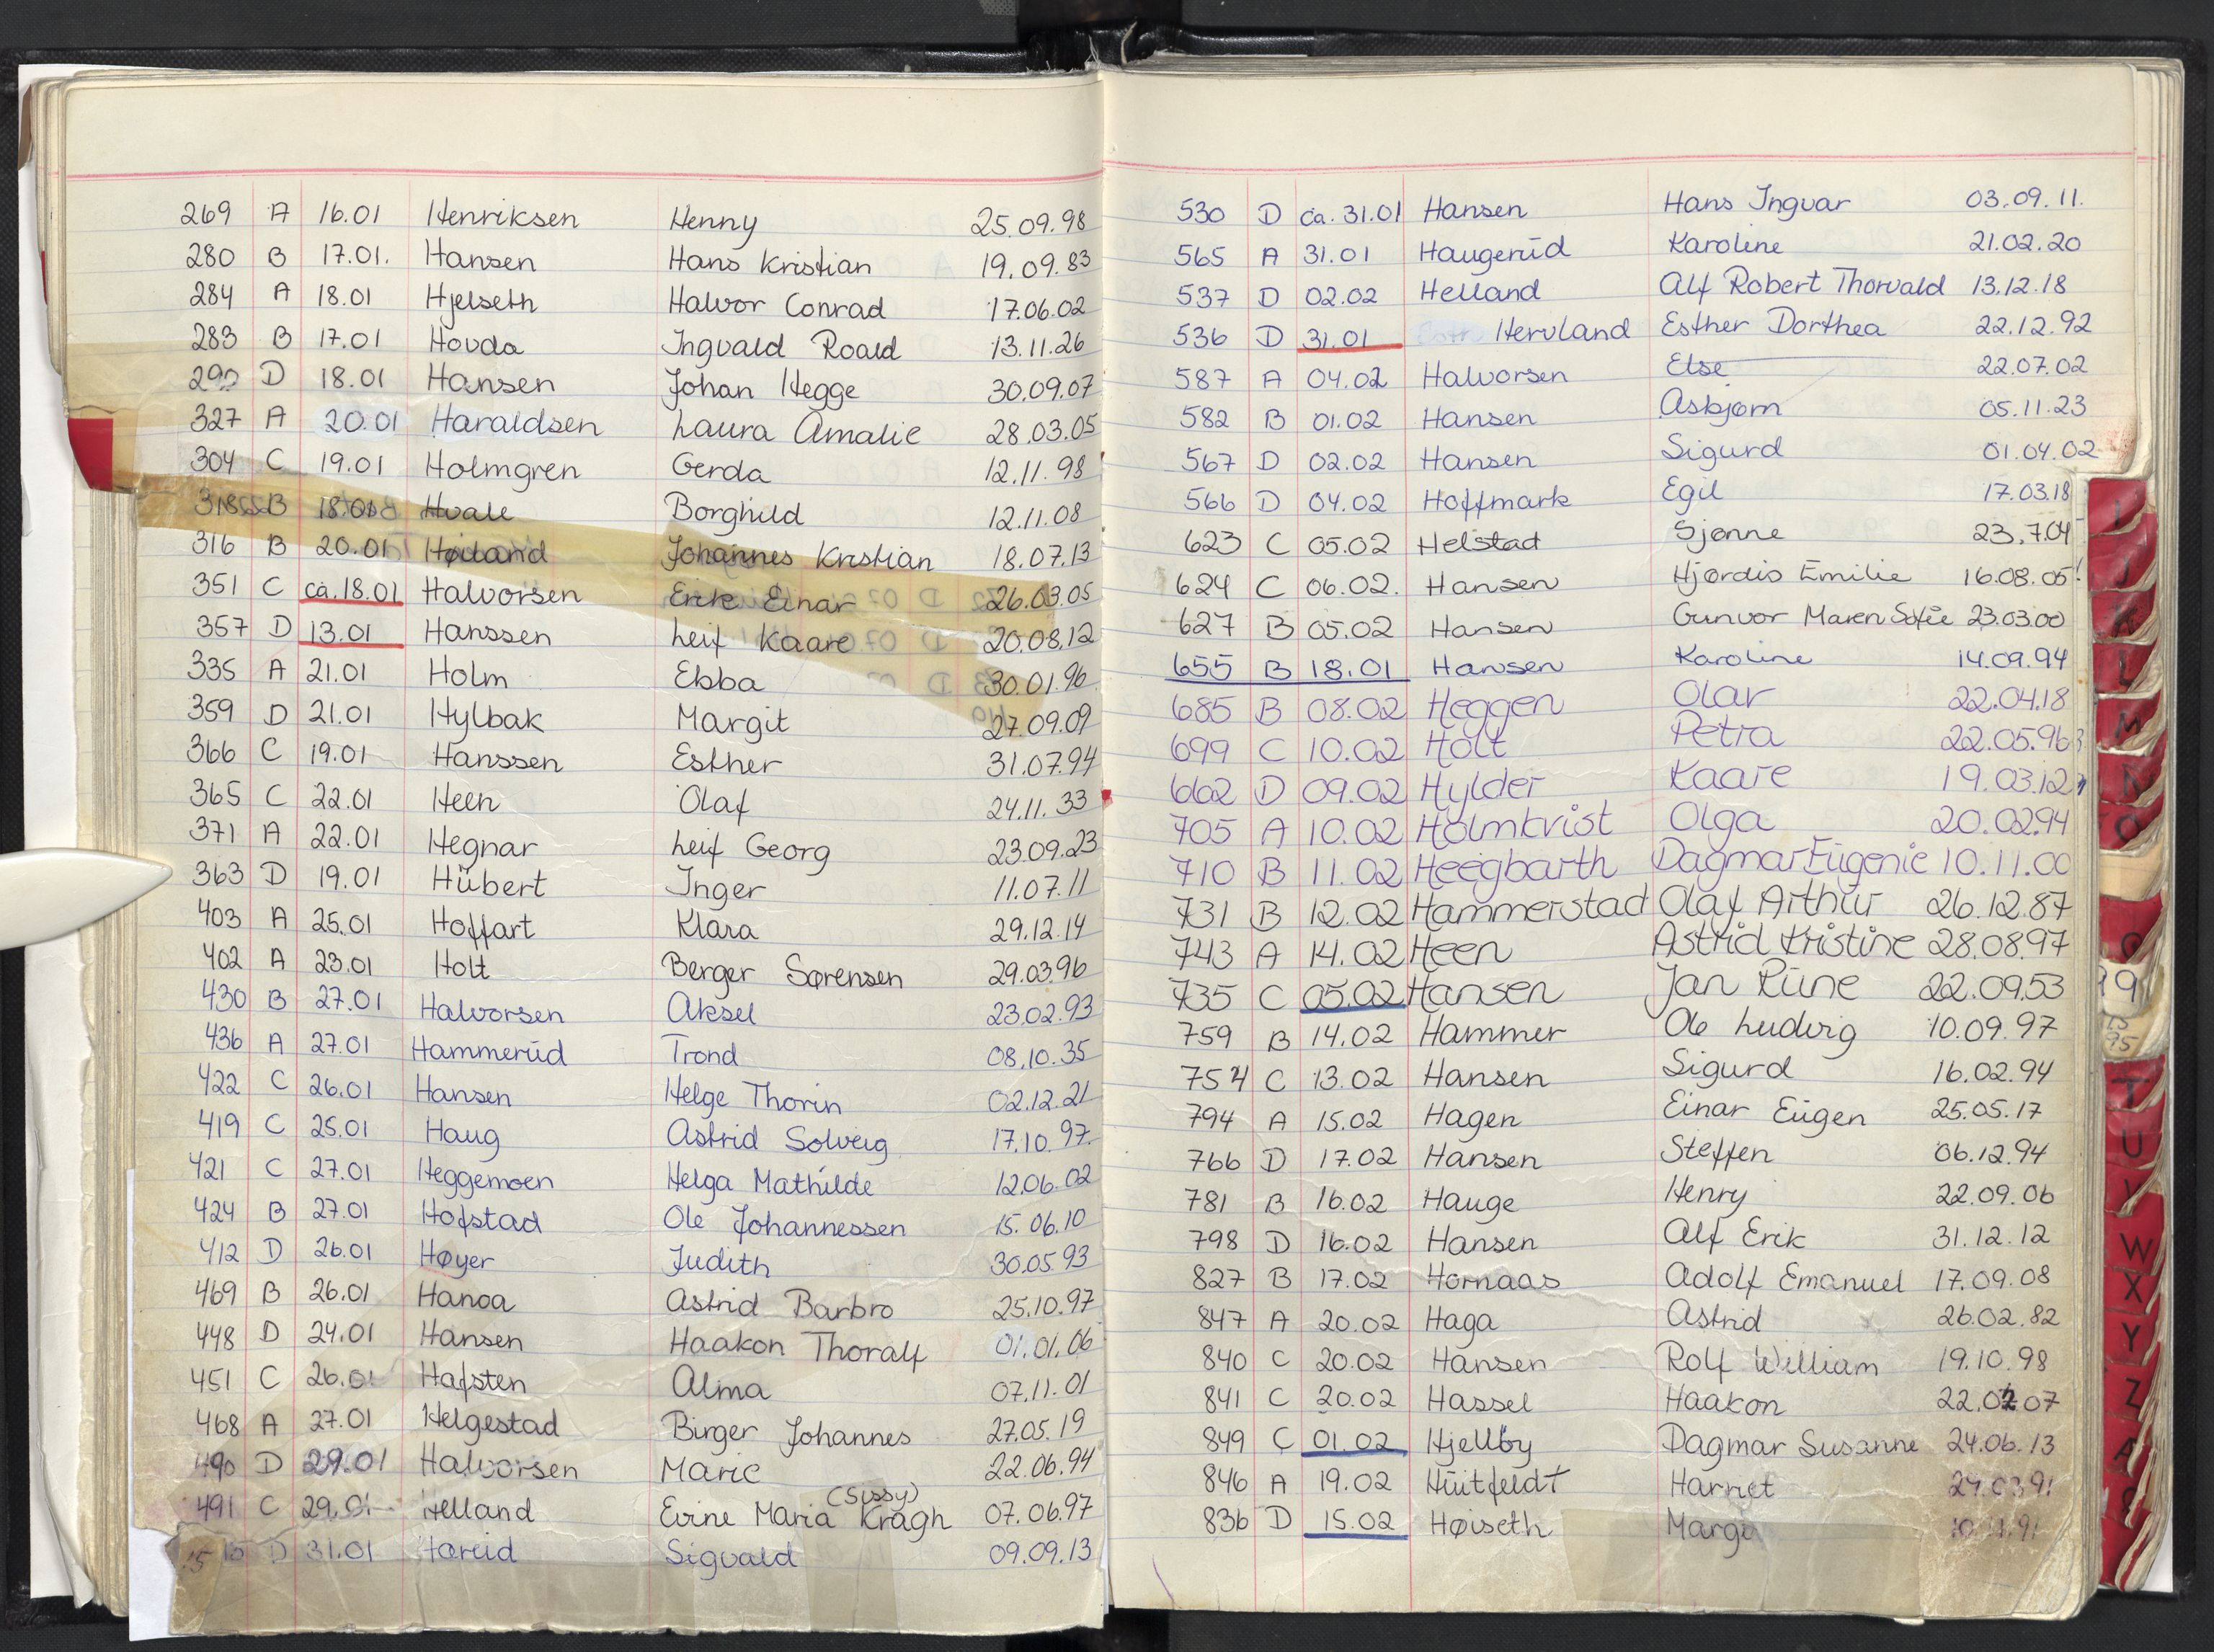 269 A 16.01 Henriksen Henny 25.09.98
280 B 17.01. Hansen Hans Kristian 19.09.83
284 A 18.01 Hjelseth Halvor Conrad 17.06.02
283 B 17.01 Hovda Ingvald Roald 13.11.26
290 D 18.01 Hansen Johan Hegge 30.09.07
327 A 20.01 Haraldsen Laura Amalie 28.03.05
304 C 19.01 Holmgren Gerda 12.11.98
B 18.01 Hvale Borghild 12.11.08
316 B 20.01 Høiland Johannes Kristian 18.07.13
351 C ca.18.01 Halvorsen Erik Einar 26.03.05
357 D 13.01 Hanssen Leif Kaare 20.08.12
335 A 21.01 Holm Ebba 30.01.96
359 D 21.01 Hylbak Margit 27.09.09
366 C 19.01 Hanssen Esther 31.07.94
365 C 22.01 Heen Olaf 24.11.33
371 A 22.01 Hegnar Leif Georg 23.09.23
363 D 19.01 Hübert Inger 11.07.11
403 A 25.01 Hoffart Klara 29.12.14
402 A 23.01 Holt Berger Sørensen 29.03.96
430 B 27.01 Halvorsen Aksel 23.02.93
436 A 27.01 Hammerud Trond 08.10.35
422 C 26.01 Hansen Helge Thorin 02.12.21
419 C 25.01 Haug Astrid Solveig 17.10.97.
421 C 27.01 Heggemoen Helga Mathilde 12.06.02
424 B 27.01 Hofstad Ole Johannessen 15.06.10
412 D 26.01 Høyer Judith 30.05.93
469 B 26.01 Hanoa Astrid Barbro 25.10.97
448 D 24.01 Hansen Haakon Thoralf 01.01.06
451 C 26.01 Hafsten Alma 07.11.01
468 A 27.01 Helgestad Birger Johannes 27.05.19
490 D 29.01 Halvorsen Marie 22.06.94
491 C 29.01 Helland Evine Maria (Sissy) Kragh 07.06.97
D 31.01 Harud Sigvald 09.09.13
530 D ca. 31.01 Hansen Hans Ingvar 03.09.11.
565 A 31.01 Haugerud Karoline 21.02.20
537 D 02.02 Helland Alf Robert Thorvald 13.12.18
536 D 31.01 Hervland Esther Dorthea 22.12.92
587 A 04.02 Halvorsen Else 22.07.02
582 B 01.02 Hansen Asbjørn 05.11.23
567 D 02.02 Hansen Sigurd 01.04.02
566 D 04.02 Hoffmark Egil 17.03.18
623 C 05.02 Helstad Sjønne 23.7.04
624 C 06.02. Hansen Hjørdis Emilie 16.08.05
627 B 05.02 Hansen Gunvor Maren Sofie 23.03.00
655 B 18.01 Hansen Karoline 14.09.94
685 B 08.02 Heggen Olav 22.04.18
699 C 10.02 Holt Petra 22.05.96
662 D 09.02 Hylder Kaare 19.03.12
705 A 10.02 Holmkvist Olga 20.02.94
710 B 11.02 Heegbarth Dagmar Eugenie 10.11.00
731 B 12.02 Hammerstad Olaf Arthur 26.12.87
743 A 14.02 Heen Astrid Kristine 28.08.97
735 C 05.02 Hansen Jan Rune 22.09.53
759 B 14.02 Hammer Ole Ludvig 10.09.97
754 C 13.02 Hansen Sigurd 16.02.94
794 A 15.02 Hagen Einar Eugen 25.05.17
766 D 17.02 Hansen Steffen 06.12.94
781 B 16.02 Hauge Henry 22.09.06
798 D 16.02 Hansen Alf Erik 31.12.12
827 B 17.02 Hornaas Adolf Emanuel 17.09.08
847 A 20.02 Haga Astrid 26.02.82
840 C 20.02 Hansen Rolf William 19.10.98
841 C 20.02 Hassel Haakon 22.02.07
849 C 01.02 Hjellby Dagmar Susanne 24.06.13
846 A 19.02 Huitfeldt Harriet 24.03.91
836 D 15.02 Høiseth
I
J
K
L
M
N
O
T
U
V
W
X
Y
Z